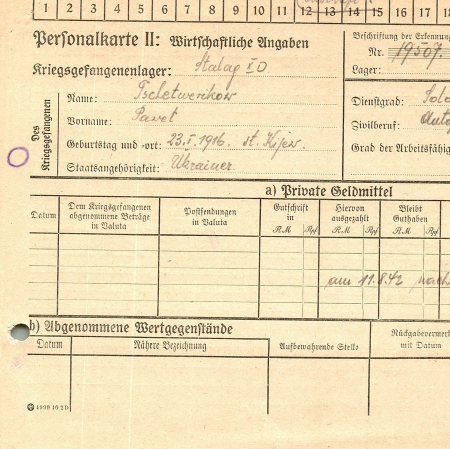 1 2 3 4 5 6 7 8 9 10 11 12 13 14 15 16 17 18
Personalkarte II: Wirtschaftliche Angaben
Beschriftung der Erkennung
Nr. 19507.
Kriegsgefangenenlager: Stalag X D
Lager:
Des Kriegsgefangenen
Name: Tschetwerikow
Dienstgrad: Sold
Vorname: Pavel
Zivilberuf: Auto
Geburtstag und -ort: 23. I. 1916. st. Kijev.
Grad der Arbeitsfähig
Staatsangehörigkeit: Ukrainer
a) Private Geldmittel
Datum
Dem Kriegsgefangenen abgenommene Beträge in Valuta
Postsendungen in Valuta
Gutschrift in
RM Rpf
Hiervon ausgezahlt
RM Rpf
Bleibt Guthaben
RM Rpf
am 11.8.42 nach
b) Abgenommene Wertgegenstände
Datum
Nähere Bezeichnung
Aufbewahrende Stelle
Rückgabevermerk mit Datum
4999 10 2D